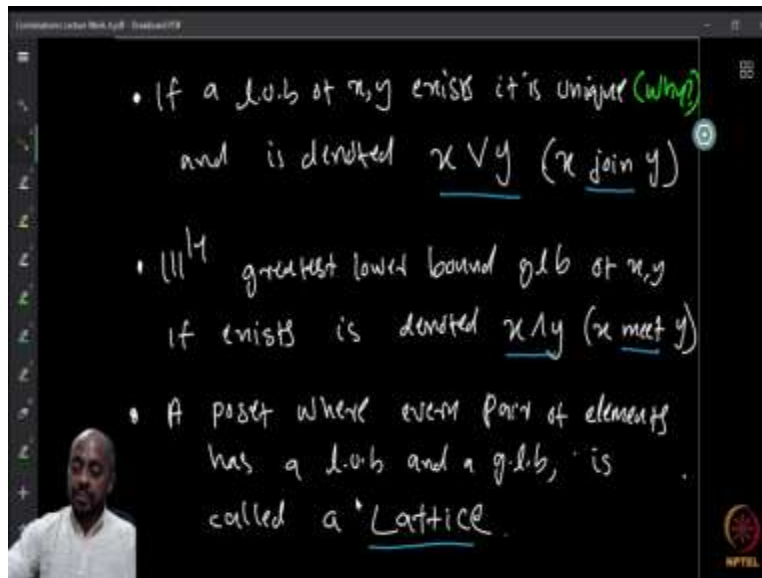 Combinatorics Lecture Week 4.pdf - Drawboard PDF
• If a l.u.b of x,y exists it is unique (why?)
and is denoted x ∨ y (x join y)
• |||ly greatest lower bound glb of x,y
if exists is denoted x ∧ y (x meet y)
• A poset where every pair of elements
has a l.u.b and a g.l.b, is
called a Lattice.
NPTEL